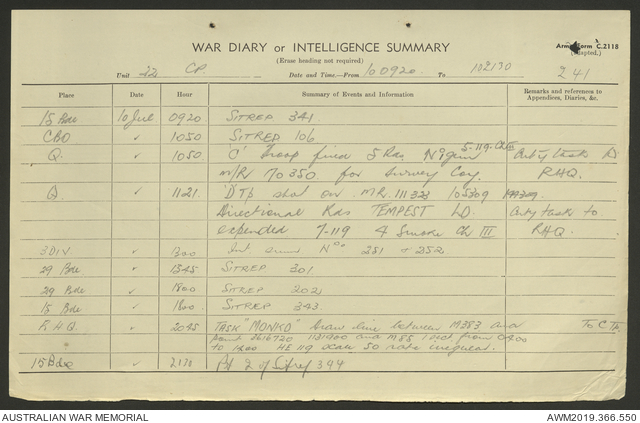 WAR DIARY or INTELLIGENCE SUMMARY
(Erase heading not required)
Army Form C.2118
(Adapted.)
Unit 22 CP. Date and Time.—From 100920. To 102130 241
Place Date Hour Summary of Events and Information Remarks and references to Appendices, Diaries, &c.
15 Bde 10 Jul 0920 SITREP 341.
CBO ✓ 1050 SITREP 106
Q. ✓ 1050 'C' Troop fired 5 Rds. No 1 gun 5-119. Ch III Arty task to
M/R/ 70350. for Survey Coy. RHQ.
Q ✓ 1121. 'D' Tp shot on M.R. 111323 105309
Directional Rds TEMPEST LD. Arty task to.
expended 7-119 4 Smoke Ch III RHQ.
3 DIV. ✓ 1300 Int summ Nos 251 + 252
29 Bde ✓ 1345 SITREP 301
29 Bde ✓ 1800 SITREP 202
15 Bde ✓ 1800 SITREP 343
RHQ. ✓ 2045 TASK "MONKO" line between M383 and To C Tp.
point 2616720 1131900 and M85 from 0900
to 1200 HE 119 scale 50 rate irregular.
15 Bde ✓ 2130 Pt 2 of Sitrep 344
AUSTRALIAN WAR MEMORIAL AWM2019.366.550